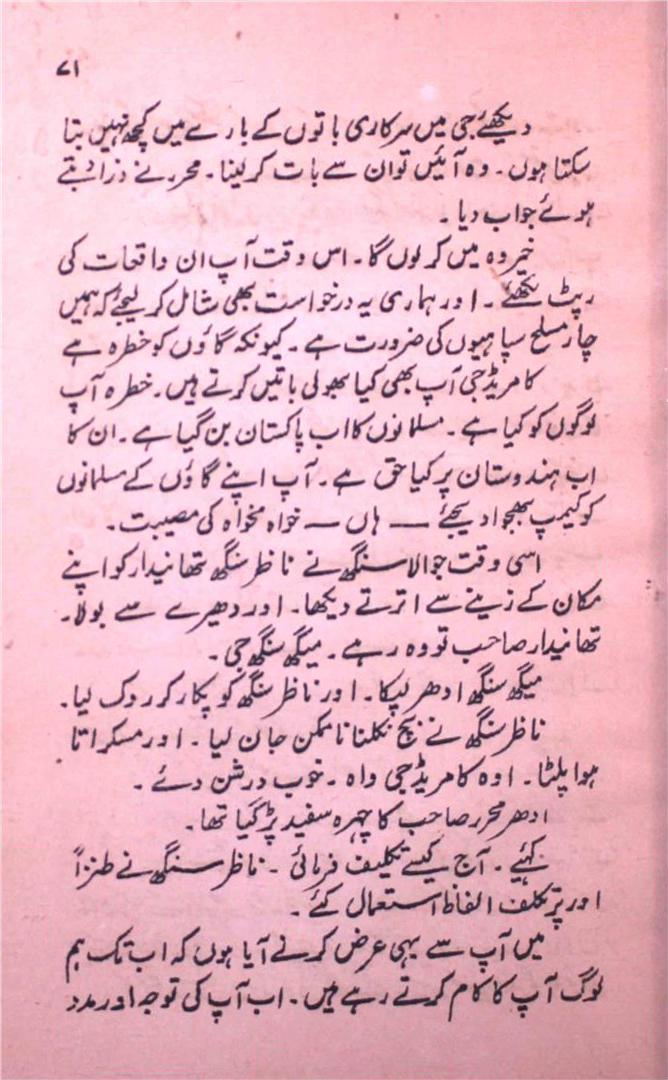 ۷۱
دیکھئے جی میں سرکاری باتوں کے بارے میں کچھ نہیں بتا
سکتا ہوں۔ وہ آئیں تو ان سے بات کر لینا۔ محرر نے ذرا دبتے
ہوئے جواب دیا۔
خیر وہ میں کر لوں گا۔ اس وقت آپ ان واقعات کی
رپٹ لکھئے۔ اور ہماری یہ درخواست بھی شامل کر لیجئے کہ ہمیں
چار مسلح سپاہیوں کی ضرورت ہے۔ کیونکہ گاؤں کو خطرہ ہے
کامریڈ جی آپ بھی کیا بھولی باتیں کرتے ہیں۔ خطرہ آپ
لوگوں کو کیا ہے۔ مسلمانوں کا اب پاکستان بن گیا ہے۔ ان کا
اب ہندوستان پر کیا حق ہے۔ آپ اپنے گاؤں کے مسلمانوں
کو کیمپ بھجوا دیجئے — ہاں — خواہ مخواہ کی مصیبت۔
اسی وقت جوالا سنگھ نے ناظر سنگھ تھانیدار کو اپنے
مکان کے زینے سے اترتے دیکھا۔ اور دھیرے سے بولا۔
تھانیدار صاحب تو وہ رہے۔ میگھ سنگھ جی۔
میگھ سنگھ ادھر لپکا۔ اور ناظر سنگھ کو پکار کر روک لیا۔
ناظر سنگھ نے بچ نکلنا ناممکن جان لیا۔ اور مسکراتا
ہوا پلٹا۔ اوہ کامریڈ جی واہ۔ خوب درشن دئے۔
ادھر محرر صاحب کا چہرہ سفید پڑ گیا تھا۔
کہئے۔ آج کیسے تکلیف فرمائی۔ ناظر سنگھ نے طنزاً
اور پر تکلف الفاظ استعمال کئے۔
میں آپ سے یہی عرض کرنے آیا ہوں کہ اب تک ہم
لوگ آپ کا کام کرتے رہے ہیں۔ اب آپ کی توجہ اور مدد